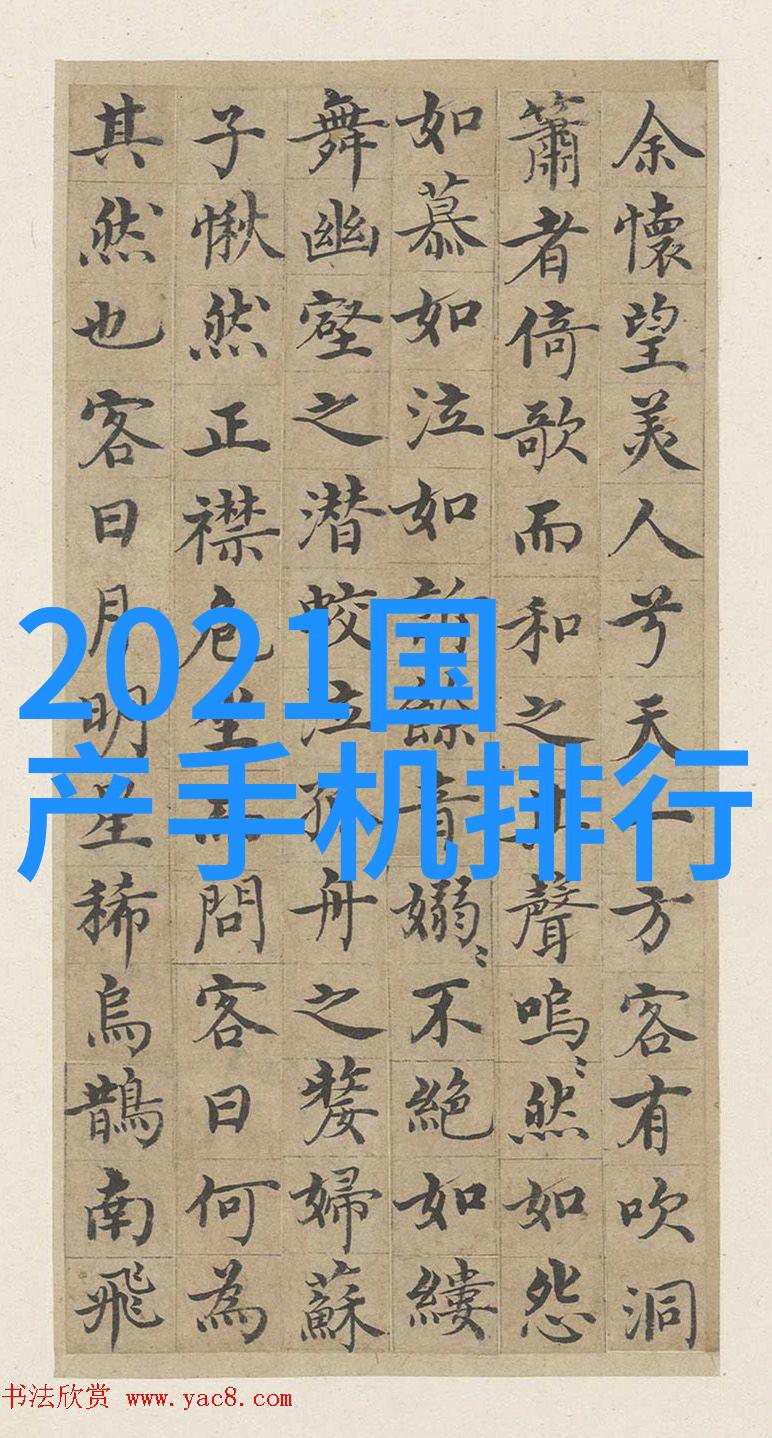 余懷望美人兮天一方客有吹洞
簫者倚歌而和之其聲嗚〻然如怨
如慕如泣如訴餘音嫋〻不絶如縷
舞幽壑之潜蛟泣孤舟之嫠婦蘇
子愀然正襟危坐而問客曰何為
其然也客曰月明星稀烏鵲南飛
2021国
产手机排行
书法欣赏 www.yac8.com